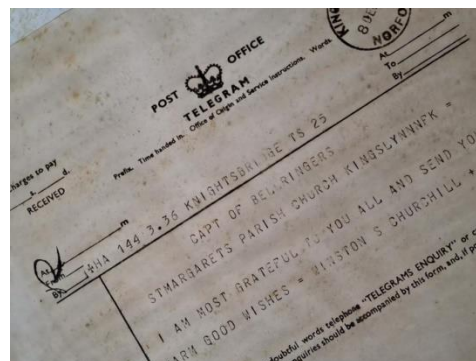 POST OFFICE
TELEGRAM
Prefix. Time handed in. Office of Origin and Service Instructions. Words
KING
8 DE
NORFO
At m
To
By
charges to pay
s. d.
RECEIVED
At m
From
By
HA 144 3.36 KNIGHTSBRIDGE TS 25
CAPT OF BELLRINGERS
STMARGARETS PARISH CHURCH KINGSLYNNNFK =
I AM MOST GRATEFUL TO YOU ALL AND SEND YO
ARM GOOD WISHES = WINSTON S CHURCHILL +
doubtful words telephone "TELEGRAMS ENQUIRY" or c
nquiries should be accompanied by this form, and, if po